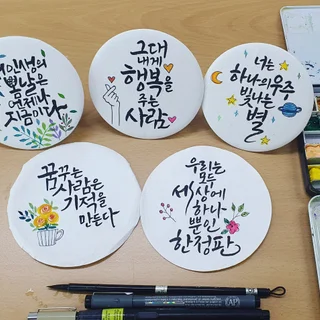 인생의
봄날은
언제나
지금이다
그대
내게
행복을
주는
사람
너는
하나의 우주
빛나는
별
꿈꾸는
사람은
기적을
만든다
우리는
모두
세상에
하나
뿐인
한정판